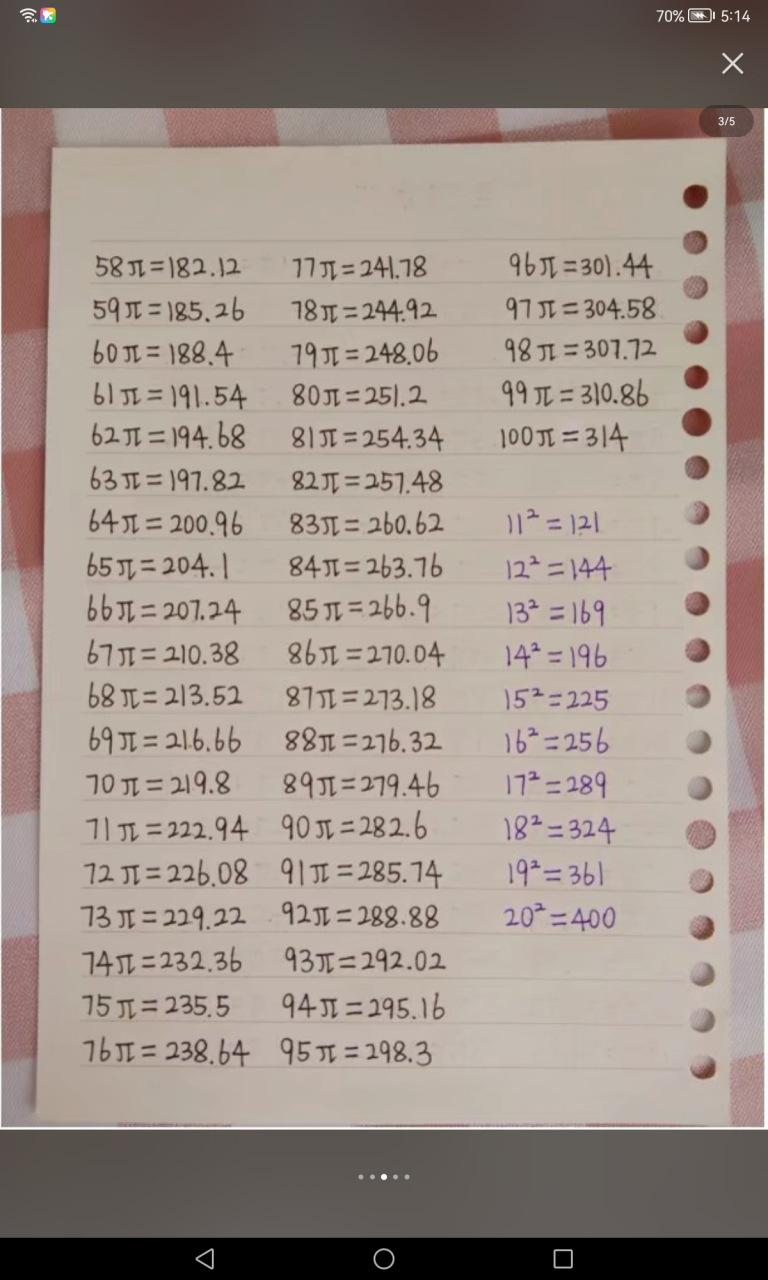 70% 5:14
3/5
58π=182.12
59π=185.26
60π=188.4
61π=191.54
62π=194.68
63π=197.82
64π=200.96
65π=204.1
66π=207.24
67π=210.38
68π=213.52
69π=216.66
70π=219.8
71π=222.94
72π=226.08
73π=229.22
74π=232.36
75π=235.5
76π=238.64
77π=241.78
78π=244.92
79π=248.06
80π=251.2
81π=254.34
82π=257.48
83π=260.62
84π=263.76
85π=266.9
86π=270.04
87π=273.18
88π=276.32
89π=279.46
90π=282.6
91π=285.74
92π=288.88
93π=292.02
94π=295.16
95π=298.3
96π=301.44
97π=304.58
98π=307.72
99π=310.86
100π=314
11²=121
12²=144
13²=169
14²=196
15²=225
16²=256
17²=289
18²=324
19²=361
20²=400